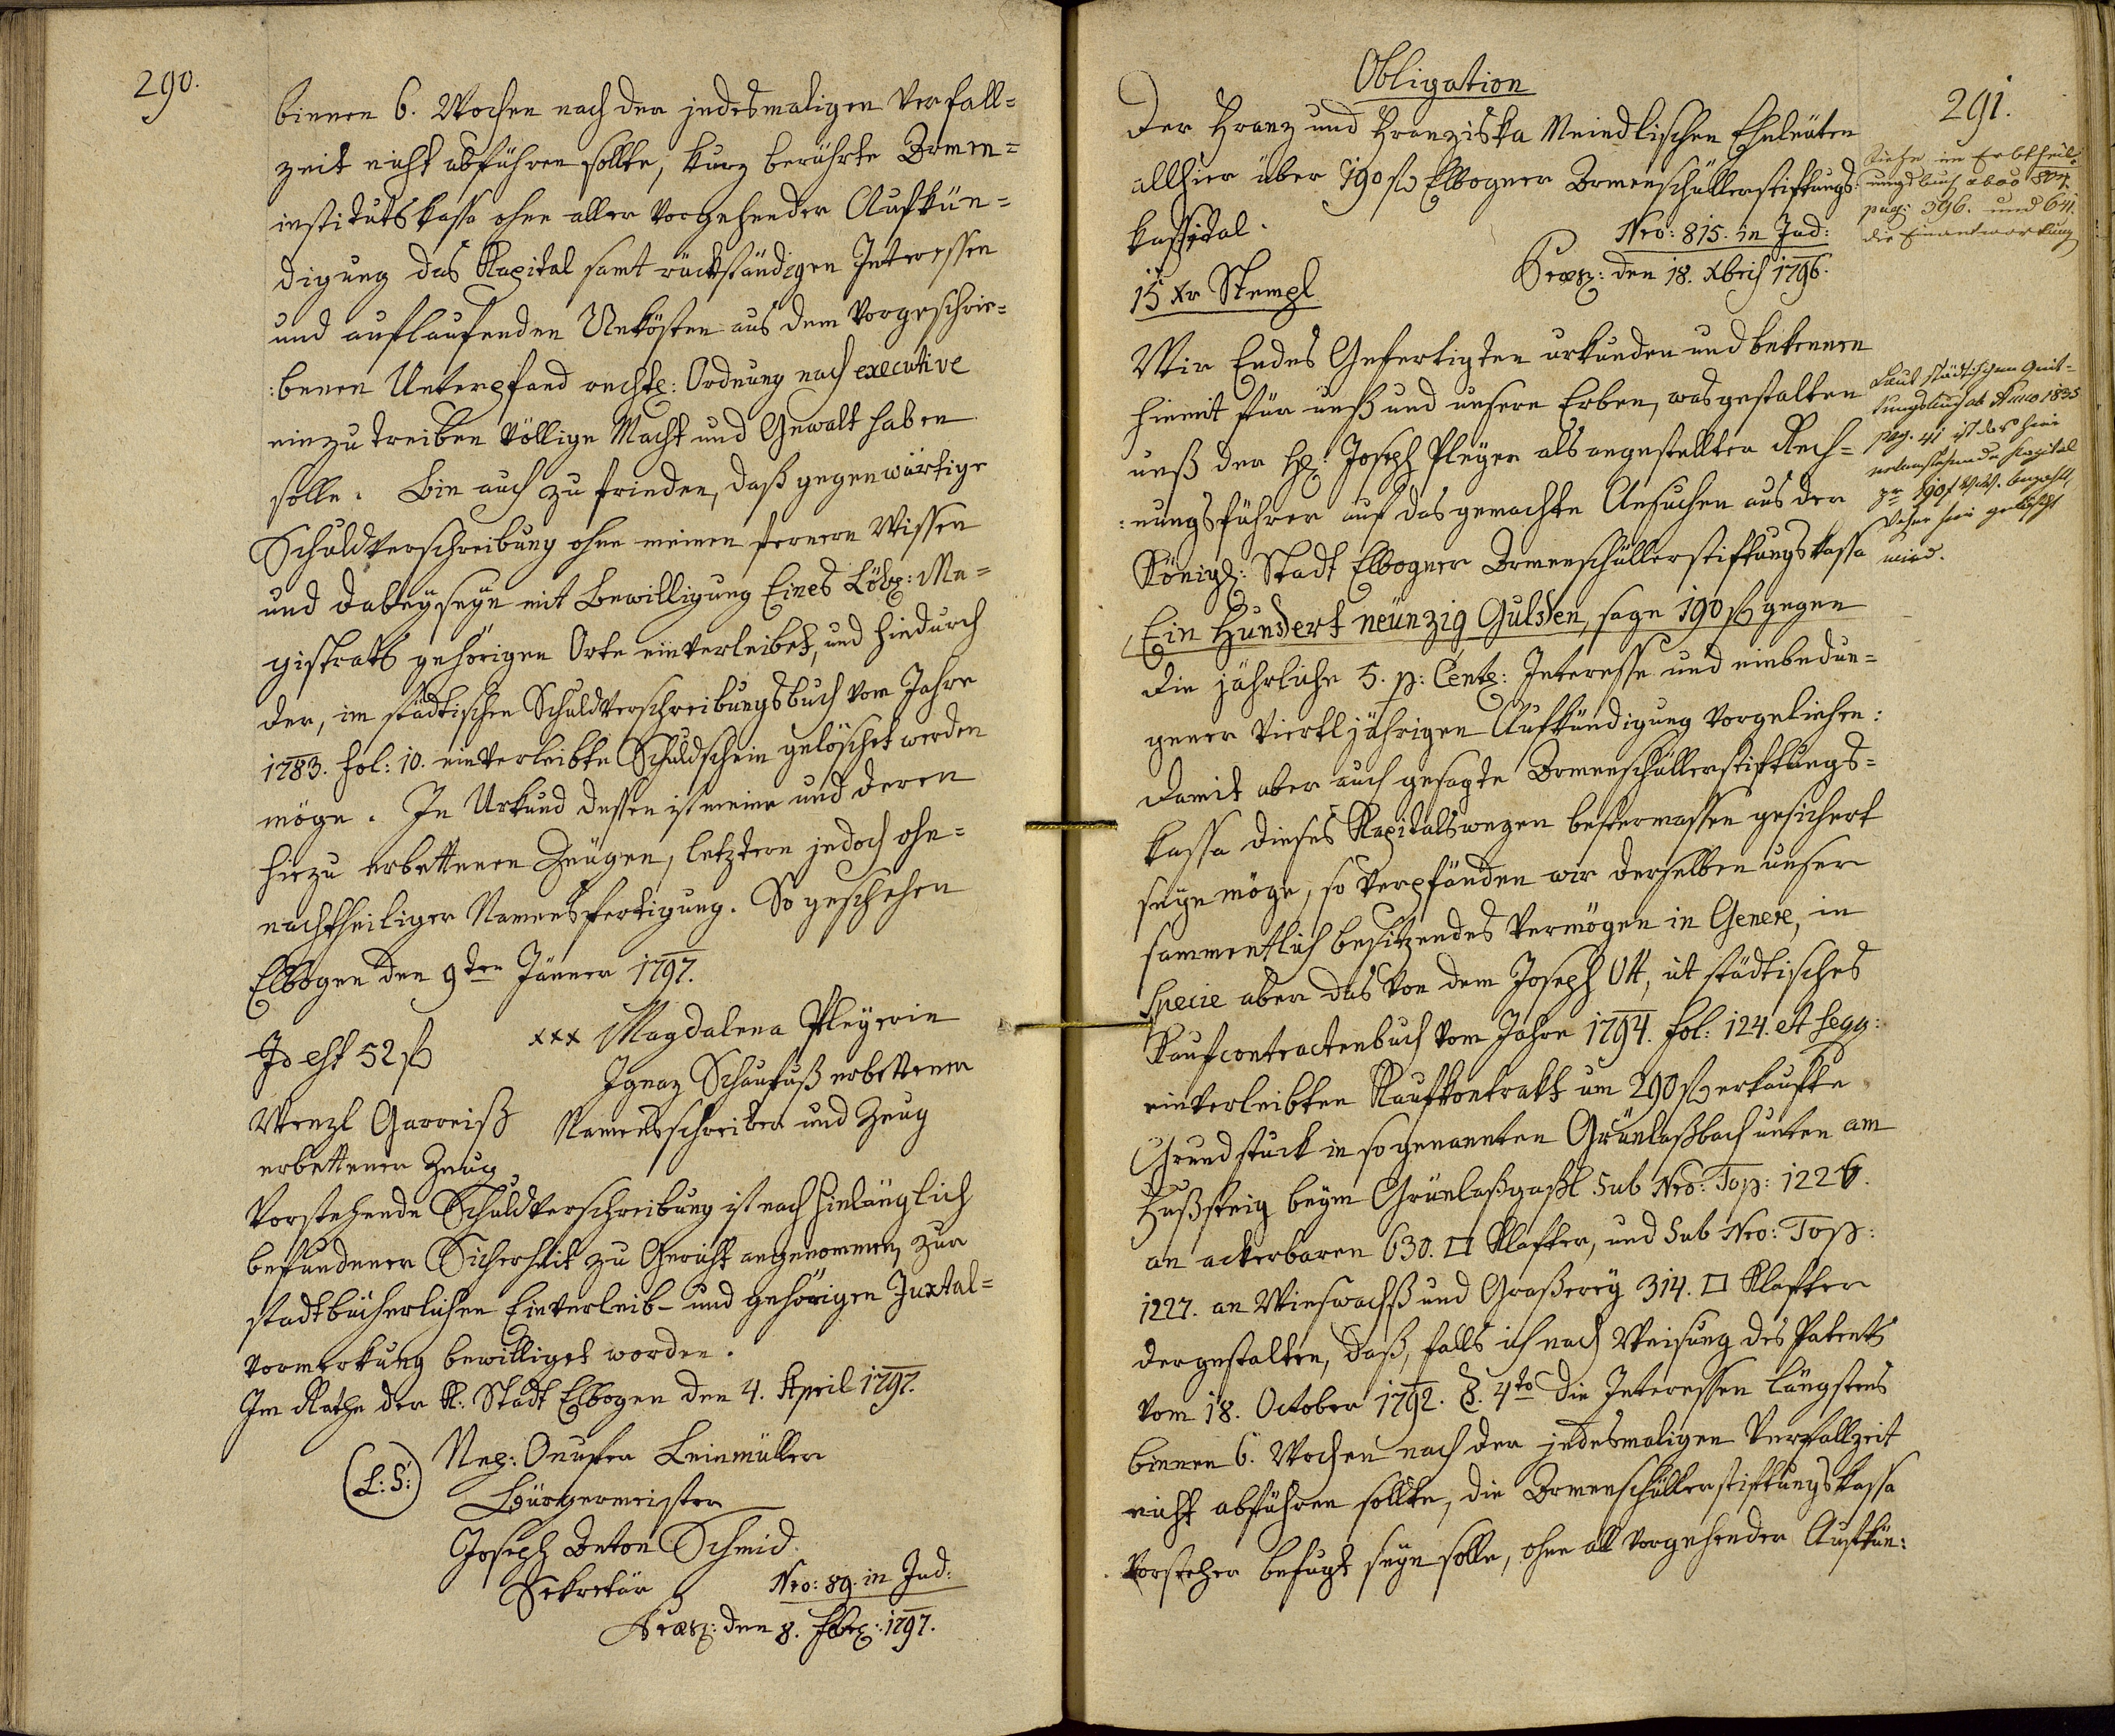 290.
binnen 6. Wochen nach der jedesmaligen Verfall=
zeit nicht abführen sollte, kurz berührte Armen=
institutskassa ohne aller vorgehender Aufkün=
digung das Kapital samt rückständigen Interessen
und auflaufenden Unkösten aus dem vorgeschrie=
:benen Unterpfand rechtl: Ordnung nach executive
einzutreiben völlige Macht und Gewalt haben
solle. Bin auch zu frieden, daß gegenwärtige
Schuldverschreibung ohne meinen fernern Wissen
und dabeyseyn mit Bewilligung Eines Löbl: Ma=
gistrats gehörigen Orte einverleibet, und hiedurch
der, im städtischen Schuldverschreibungsbuch vom Jahre
1783. fol: 10. einverleibte Schuldschein gelöschet werden
möge. In Urkund dessen ist meine und deren
hiezu erbettenen Zeügen, letztern jedoch ohn=
nachtheiliger Namensfertigung. So geschehen
Elbogen den 9ten Jänner 1797.
Id est 52 f
xxx Magdalena Pleyerin
Ignaz Schaufuß erbettener
Namensschreiber und Zeug
Wenzl Garreiß
erbettener Zeug
Vorstehende Schuldverschreibung ist nach hinlänglich
befundener Sicherheit zu Gericht angenommen, zur
stadtbücherlichen Einverleib- und gehörigen Juxtal=
vormerkung bewilliget worden.
Im Rathe der K: Stadt Elbogen den 4. April 1797.
(L:S:)
Nep: Onufer Leinmüller
Bürgermeister
Joseph Anton Schmid
Sekretär
Nro: 89. in Jud:
Praes: den 8. Febr: 1797.
Obligation
291.
Der Franz und Franziska Meindlischen Eheleüten
allhier über 190 f Elbogner Armenschüllerstiftungs:
kapital.
Nro: 815. in Jud:
15 Xr Stempl
Praes: den 18. Xbris 1796.
Siehe im Erbtheil=
ungsbuch de ao 804.
pag: 396. und 641.
die Einantwortung
Wir Endes Gefertigten urkunden und bekennen
hiemit für unß und unsere Erben, was gestalten
unß der H: Joseph Pleyer als angestellter Rech=
:nungsführer auf das gemachte Ansuchen aus der
Königl: Stadt Elbogner Armenschüllerstiftungskassa
Ein Hundert neünzig Gulden, sage 190 f gegen
die jährliche 5. p: Cent: Interesse und einbedun=
gener viertljährigen Aufkündigung vorgeliehen:
Laut städtischem Quit=
tungsbuch ab Anno 1835
pag. 41 ist das hier
nebenstehende Kapital
pr 190 f W.W. bezahlt,
daher hier gelöscht
wird.
damit aber auch gesagte Armenschüllerstiftungs=
kassa dieses Kapitals wegen bestermassen gesichert
seyn möge, so verpfänden wir derselben unser
sammentlich besitzendes Vermögen in Genere, in
Specie aber das von dem Joseph Ott, ut städtisches
Kaufcontractenbuch vom Jahre 1794. fol: 124. et seqq:
einverleibten Kaufkontrakt um 290 f erkaufte
Grundstuck in sogenannten Grünlaßbach unten am
Fußsteig beym Grünlaßgaßl Sub Nro: Top: 1226.
an ackerbaren 630. □ Klafter, und Sub Nro: Top:
1227. an Wieswachß und Graßerey 314. □ Klafter
dergestalten, daß, falls ich nach Weisung des Patents
vom 18. October 1792. §. 4to die Interessen längstens
binnen 6. Wochen nach der jedesmaligen Verfallzeit
nicht abführen sollte, die Armenschüllerstiftungskassa
Vorsteher befugt seyn solle, ohne all vorgehender Aufkün: